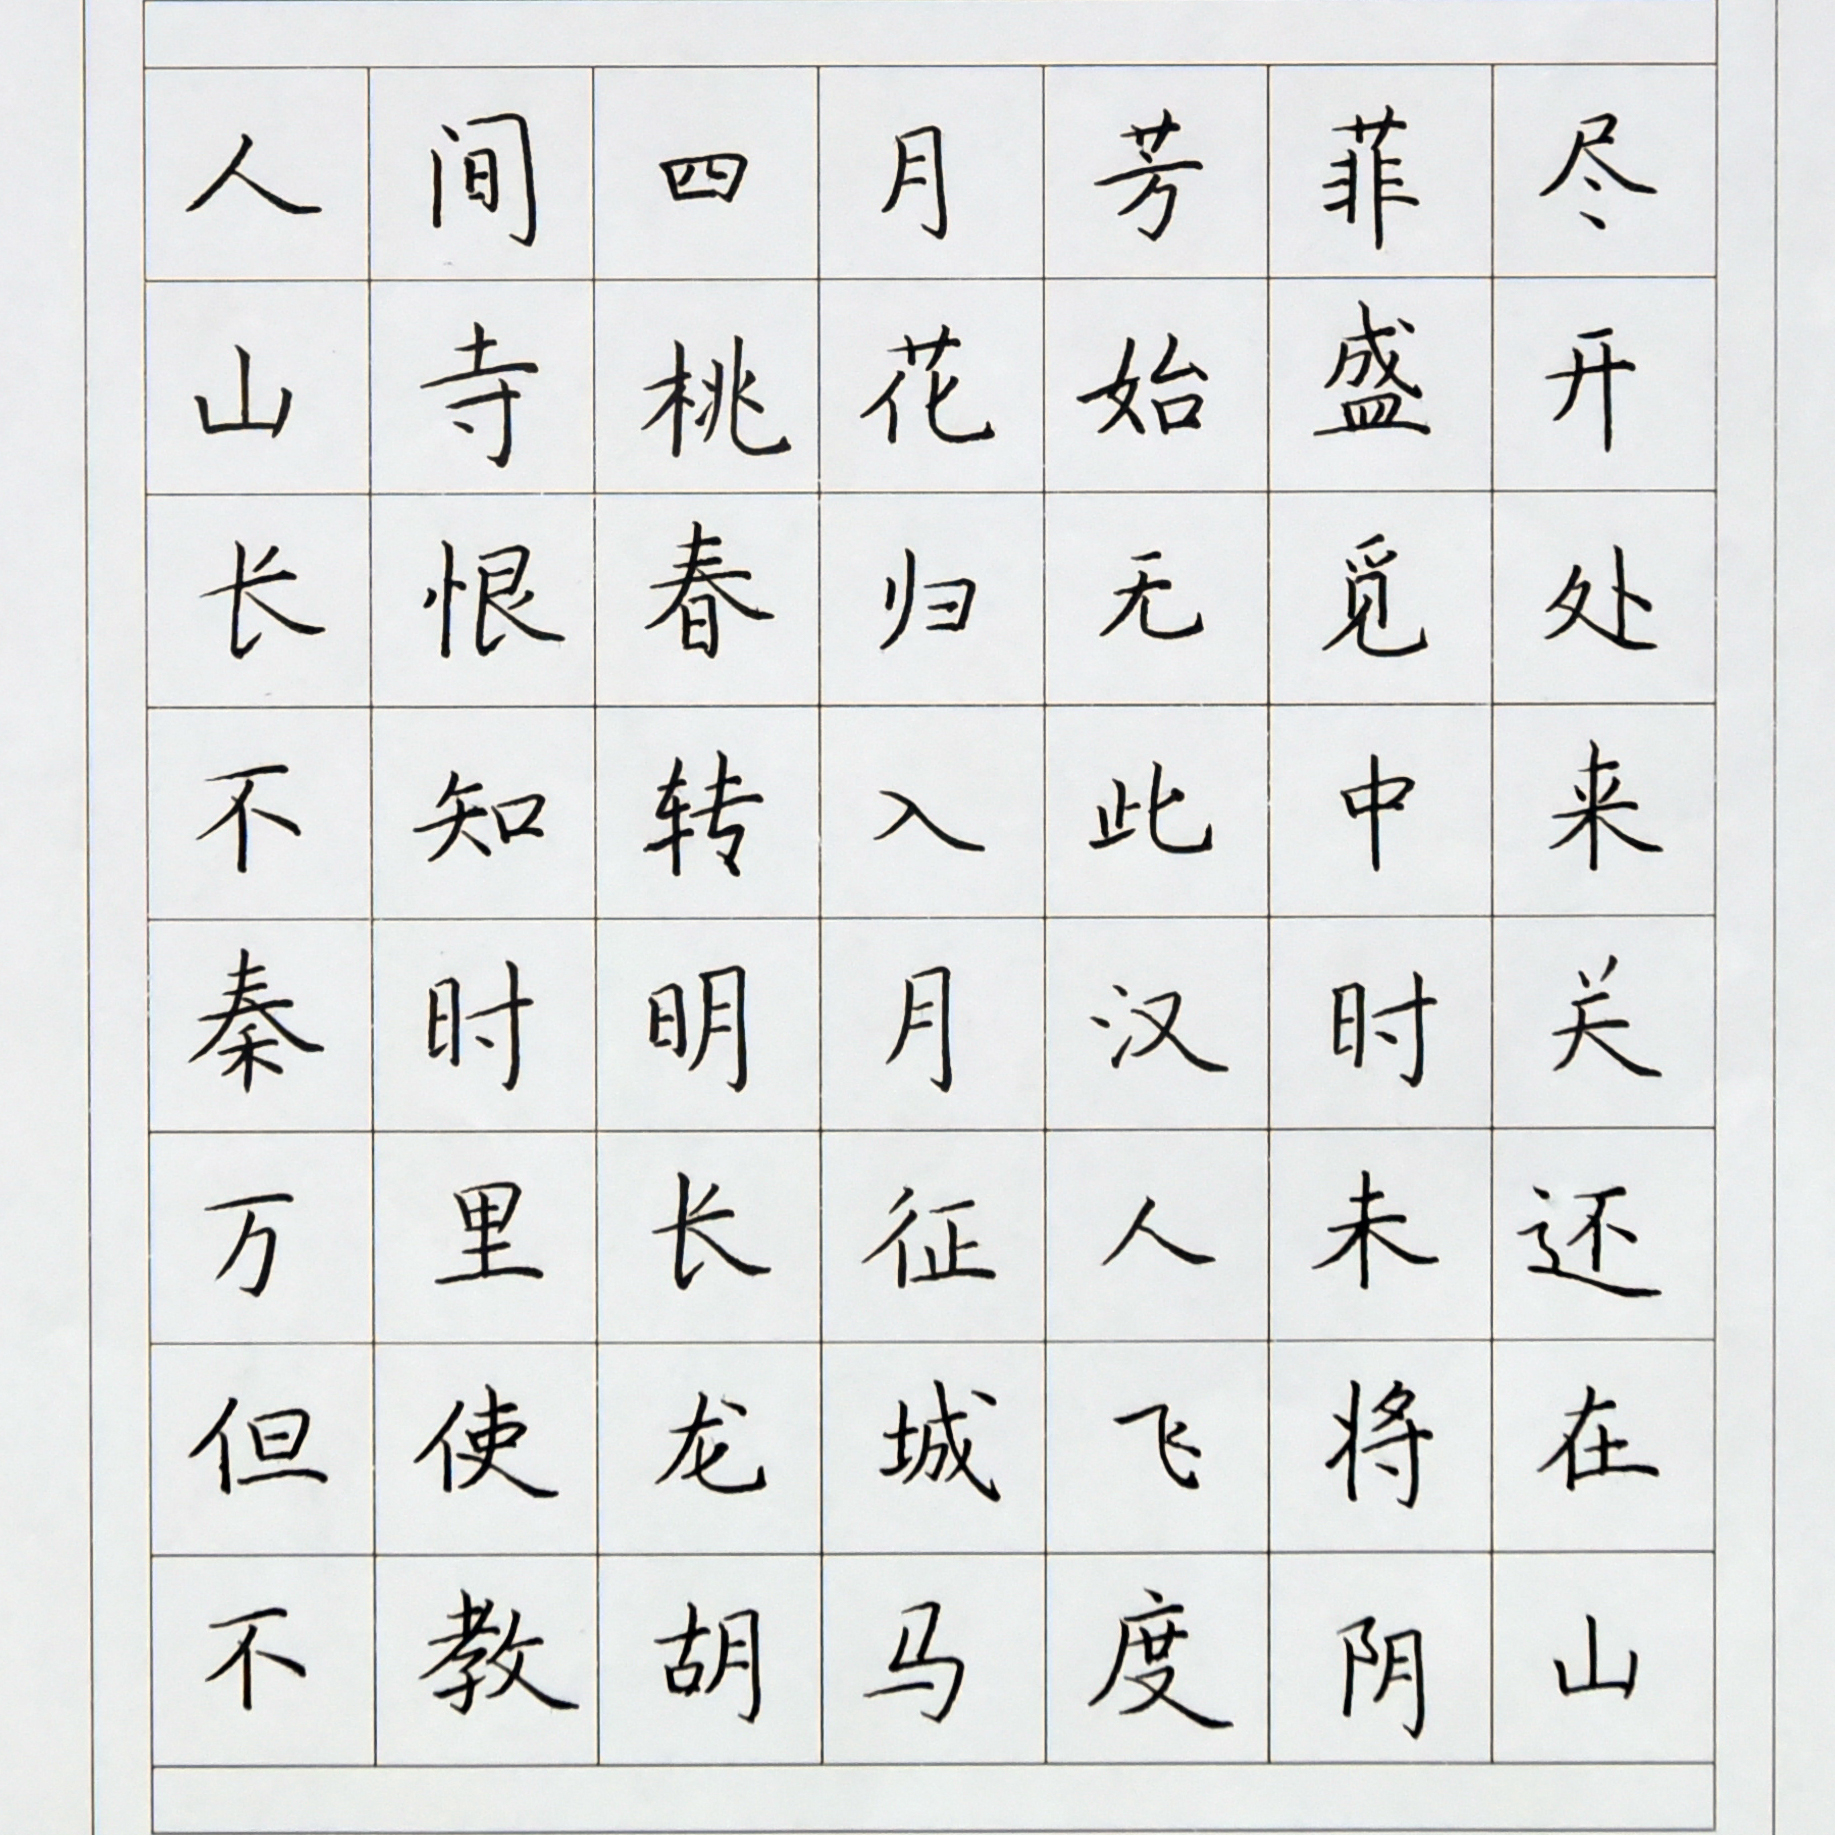 人间四月芳菲尽
山寺桃花始盛开
长恨春归无觅处
不知转入此中来
秦时明月汉时关
万里长征人未还
但使龙城飞将在
不教胡马度阴山